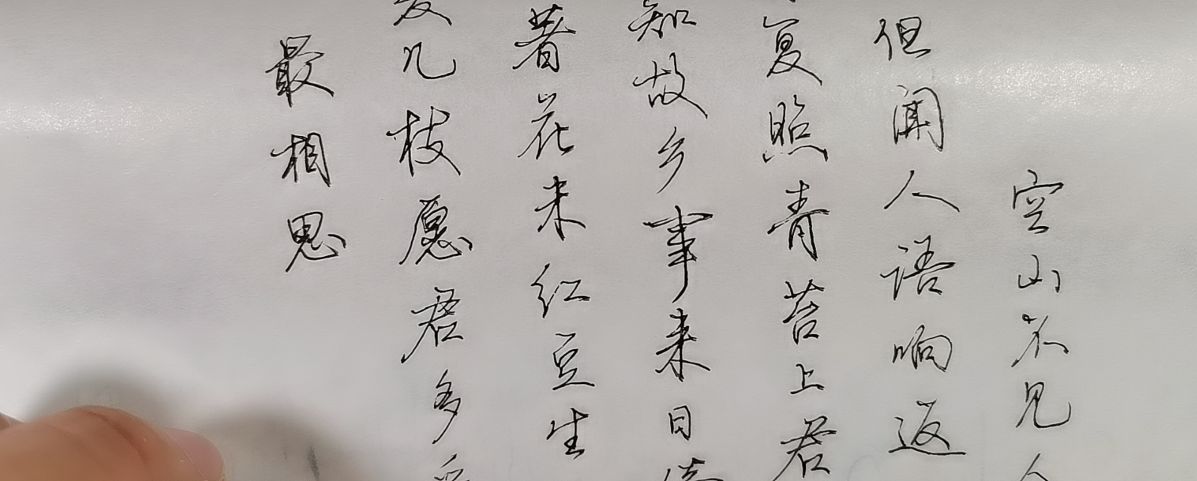 空山不见人
但闻人语响返
复照青苔上君
知故乡事来日
著花未红豆生
发几枝愿君多采
最相思